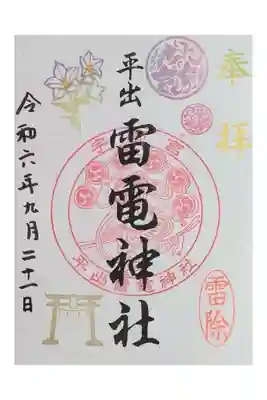 奉拝
平出
雷電神社
雷除
平出雷電神社
令和六年九月二十一日